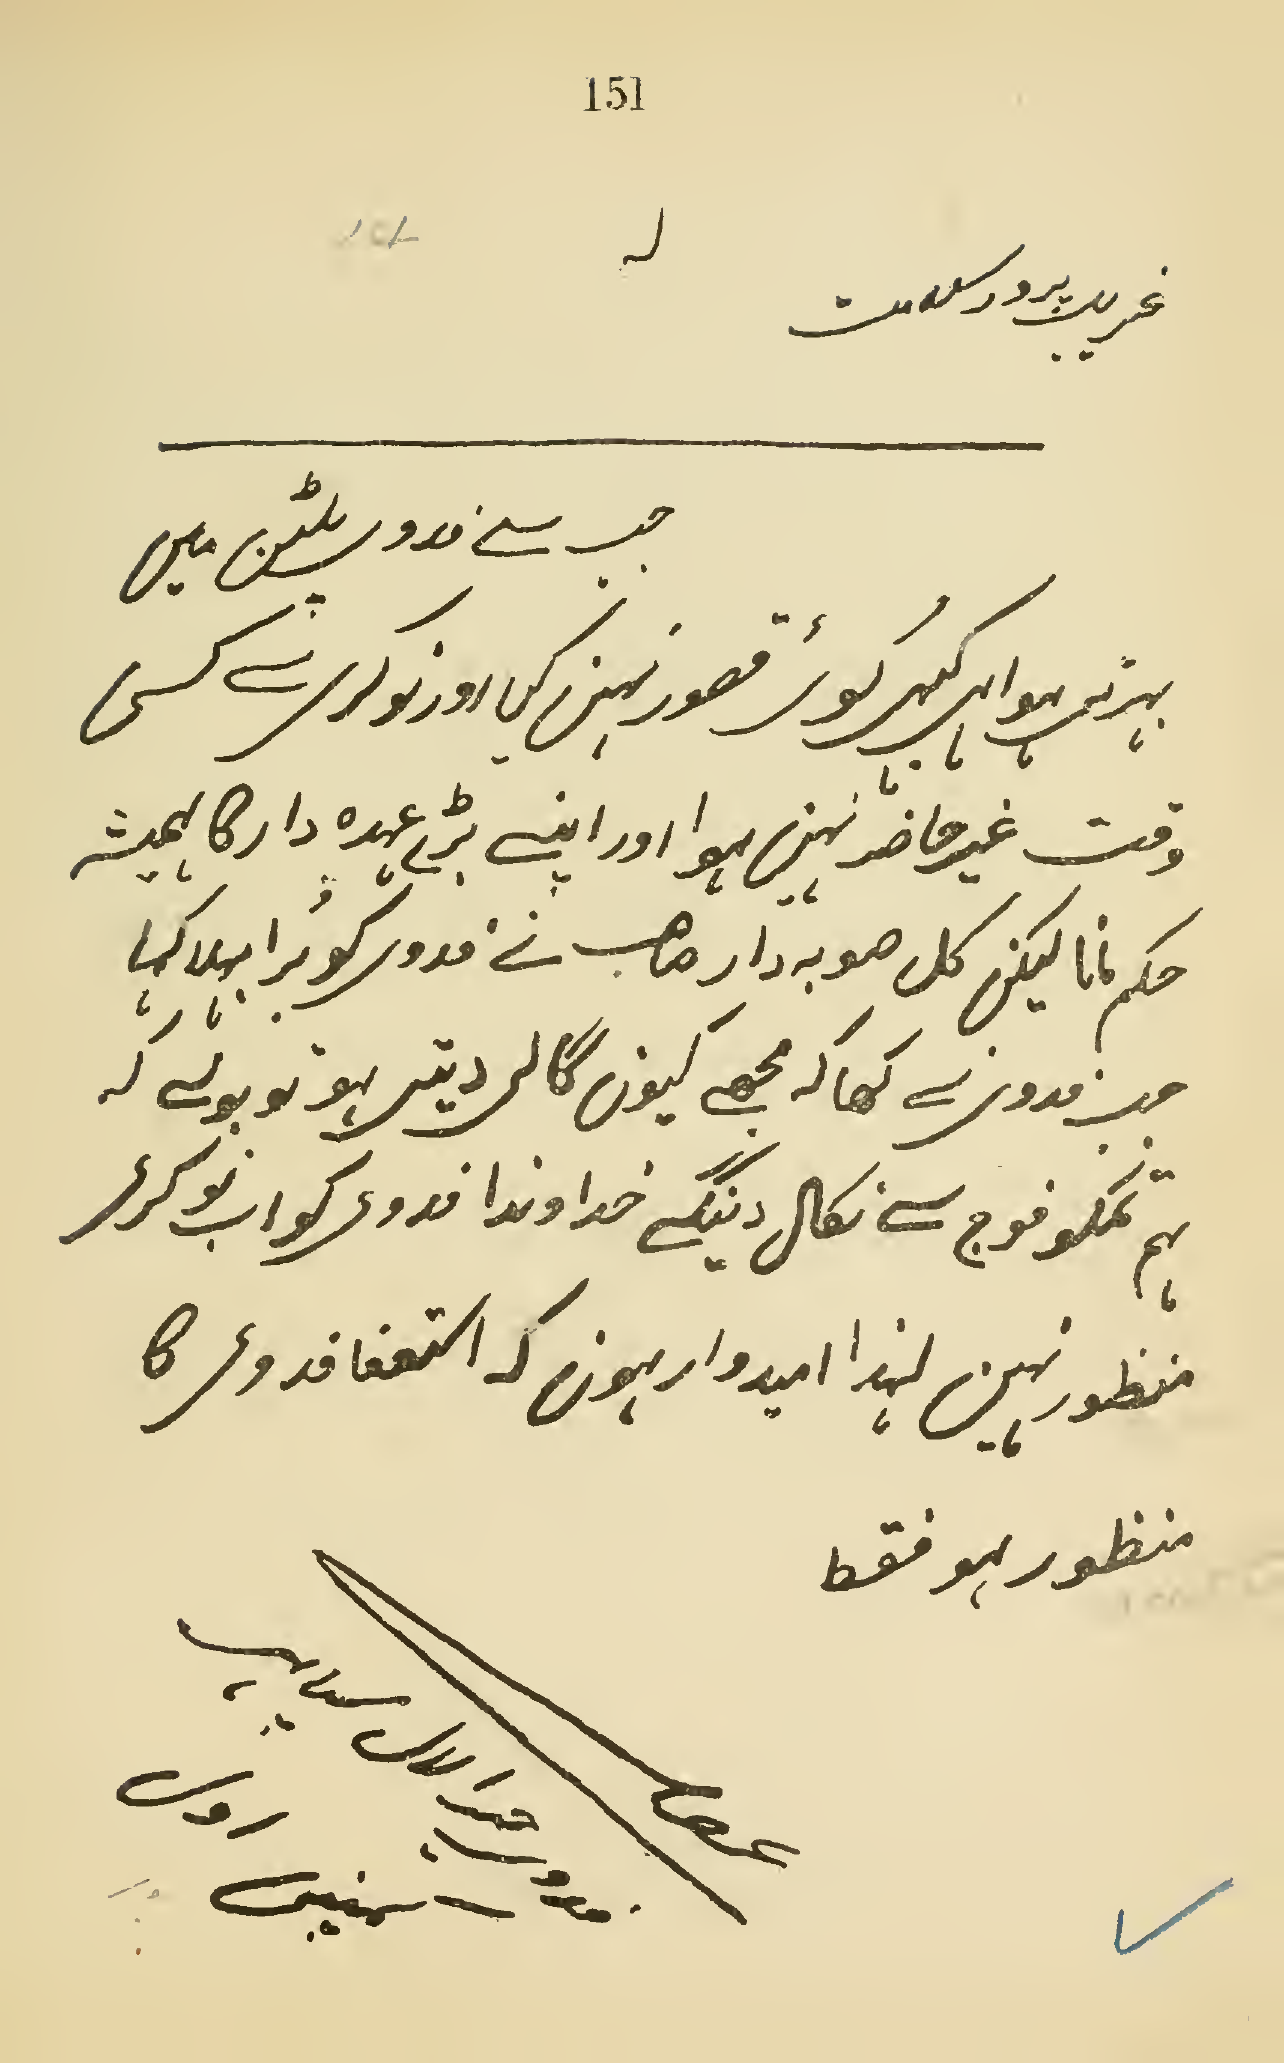 151
غریب پرور سلامت
جب سے فدوی پلٹن میں
بہرتی ہوا ہی کبہی کوئی قصور نہین کیا اور نوکری سے کسی
وقت غیر حاضر نہین ہوا اور اپنے بڑے عہدہ دار کا ہمیشہ
حکم مانا لیکن کل صوبہ دار صاحب نے فدوی کو بُرا بہلا کہا
جب فدوی نے کہا کہ مجھے کیون گالی دیتی ہو تو بولے کہ
ہم تمکو فوج سے نکال دینگے خداوندا فدوی کو اب نوکری
منظور نہین لہذا امیدوار ہون کہ استعفا فدوی کا
منظور ہو فقط
عرضے
فدوی لال سپاہی
کمپنی اول